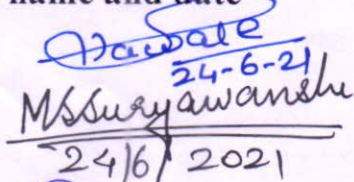 name and date
Hawale
24-6-21
MSSuryawanshi
24/6/2021